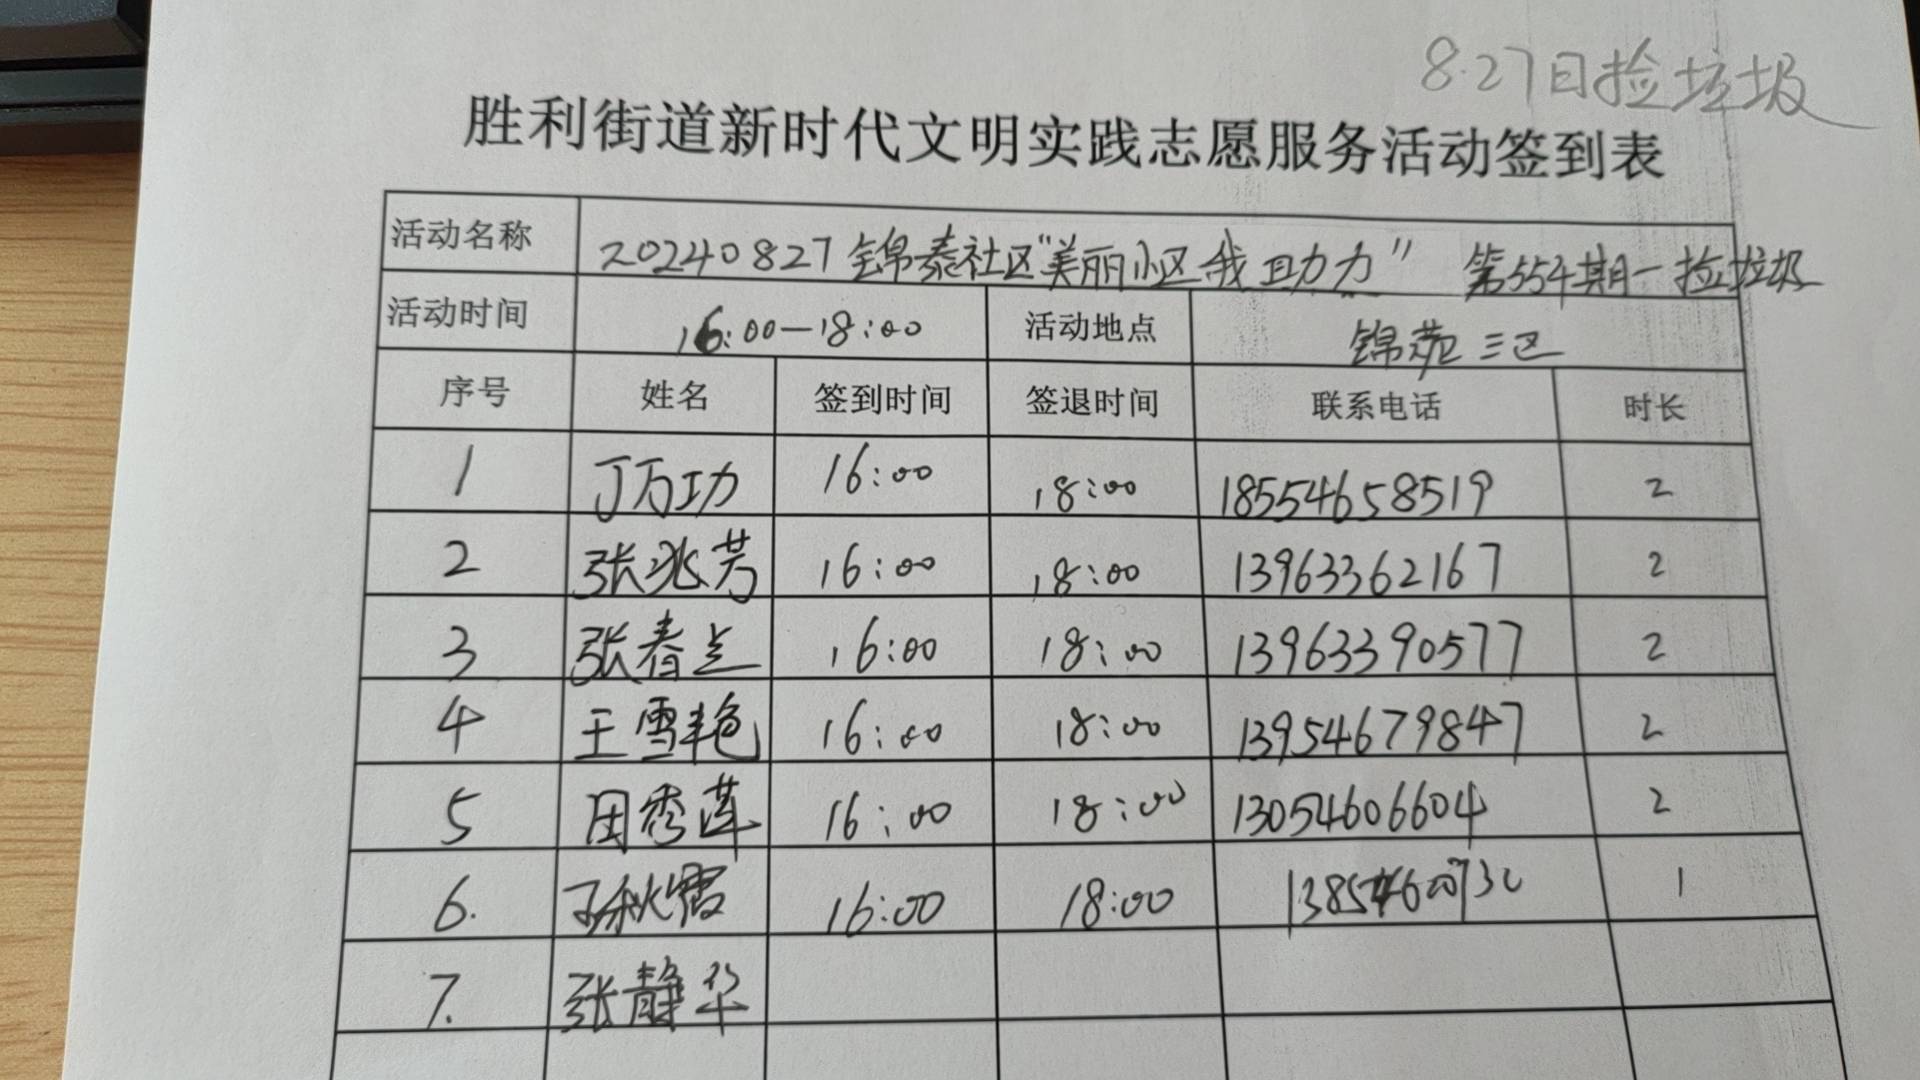 8.27日捡垃圾
胜利街道新时代文明实践志愿服务活动签到表
活动名称 20240827锦泰社区“美丽小区我助力” 第554期—捡垃圾
活动时间 16:00—18:00 活动地点 锦苑三区
序号 姓名 签到时间 签退时间 联系电话 时长
1 丁万功 16:00 18:00 18554658519 2
2 张兆芳 16:00 18:00 13963362167 2
3 张春兰 16:00 18:00 13963390577 2
4 王雪艳 16:00 18:00 13954679847 2
5 田秀莲 16:00 18:00 13054606604 2
6. 孙秋霞 16:00 18:00 1
7. 张静华